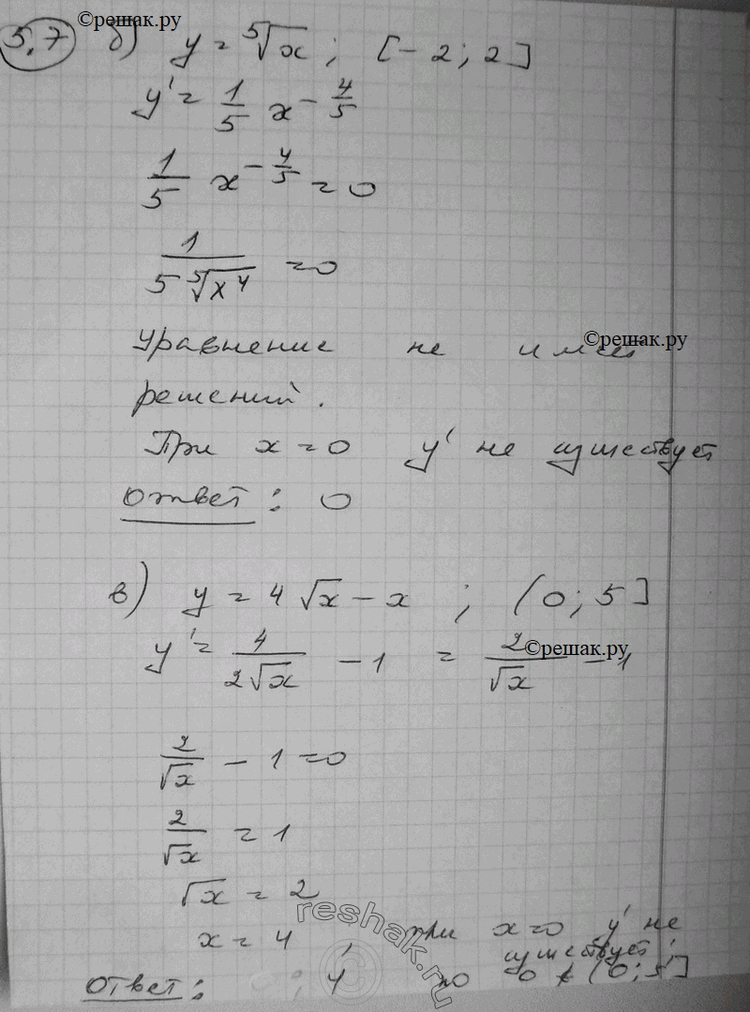 ©решак.ру
5.7 б) y = ⁵√x ; [-2; 2]
y' = 1/5 x^(-4/5)
1/5 x^(-4/5) = 0
1/(5 ⁵√x⁴) = 0
Уравнение не имеет ©решак.ру
решений.
При x=0 y' не существует
Ответ: 0
в) y = 4√x - x ; (0; 5]
y' = 4/(2√x) - 1 = 2/√x - 1 ©решак.ру
2/√x - 1 = 0
2/√x = 1
√x = 2
x = 4, при x=0 y' не
существует,
Ответ: 4 но 0 ∉ (0; 5]
reshak.ru